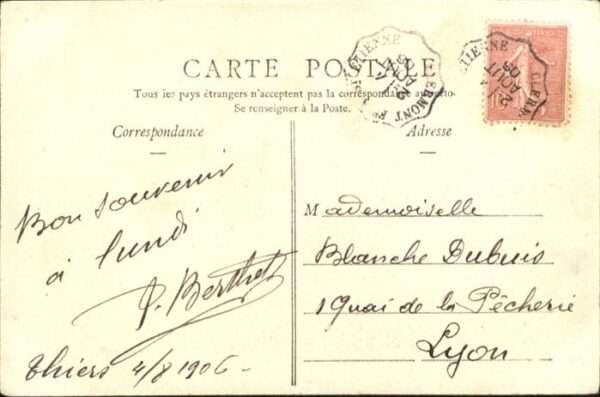 CARTE POSTALE
Tous les pays étrangers n'acceptent pas la correspondance au recto
Se renseigner à la Poste.
Correspondance
Adresse
Bon souvenir
à lundi
P. Berthet
Thiers 4/8 1906
Mademoiselle
Blanche Dubuis
1 Quai de la Pêcherie
Lyon